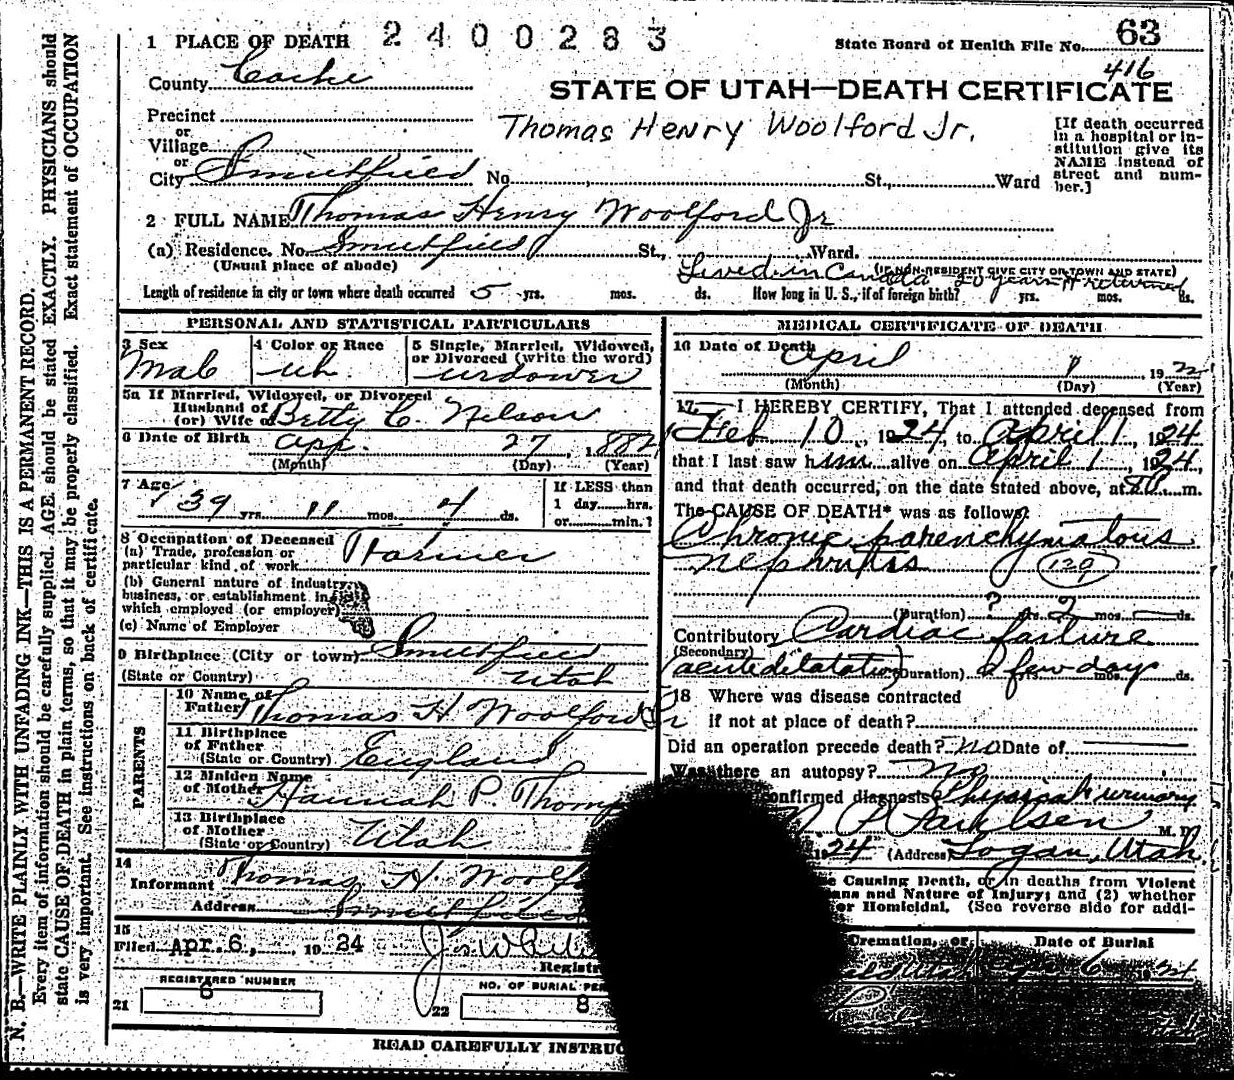 1 PLACE OF DEATH 2400283 State Board of Health File No. 63
416
County Cache
STATE OF UTAH—DEATH CERTIFICATE
Precinct
or
Village
or
City Smithfield No. St., Ward
Thomas Henry Woolford Jr.
[If death occurred
in a hospital or in-
stitution give its
NAME instead of
street and num-
ber.]
2 FULL NAME Thomas Henry Woolford Jr
(a) Residence. No. Smithfield St., Ward.
(Usual place of abode) (IF NON-RESIDENT GIVE CITY OR TOWN AND STATE)
Lived in Canada 20 years & returned
Length of residence in city or town where death occurred 5 yrs. mos. ds. How long in U. S., if of foreign birth? yrs. mos. ds.
PERSONAL AND STATISTICAL PARTICULARS
3 Sex Male
4 Color or Race wh
5 Single, Married, Widowed,
or Divorced (write the word)
widower
5a If Married, Widowed, or Divorced
Husband of
(or) Wife of Betty C. Nelson
6 Date of Birth apr. 27, 1884
(Month) (Day) (Year)
7 Age 39 yrs. 11 mos. 4 ds.
If LESS than
1 day......hrs.
or......min.?
8 Occupation of Deceased
(a) Trade, profession or
particular kind of work Farmer
(b) General nature of industry,
business, or establishment in
which employed (or employer)
(c) Name of Employer
9 Birthplace (City or town) Smithfield
(State or Country) Utah
PARENTS
10 Name of
Father Thomas H. Woolford Sr
11 Birthplace
of Father
(State or Country) England
12 Maiden Name
of Mother Hannah P. Thom
13 Birthplace
of Mother
(State or Country) Utah
14
Informant Thomas H. Woolf
Address Smithfield
15
Filed Apr. 6, 1924
Registr
REGISTERED NUMBER
21 6
NO. OF BURIAL PE
22 8
READ CAREFULLY INSTRUC
MEDICAL CERTIFICATE OF DEATH
16 Date of Death April 1 192
(Month) (Day) (Year)
17 I HEREBY CERTIFY, That I attended deceased from
Feb 10, 1924, to April 1, 1924
that I last saw him alive on April 1, 1924,
and that death occurred, on the date stated above, at m.
The CAUSE OF DEATH* was as follows:
Chronic parenchymatous
Nephritis 129
(Duration) ? yrs. 2 mos. ds.
Contributory Cardiac failure
(Secondary)
(acute dilatation) (Duration) a few days yrs. mos. ds.
18 Where was disease contracted
if not at place of death?
Did an operation precede death? No Date of
Was there an autopsy? No
onfirmed diagnosis Physical & urinary
M. D.
1924 (Address) Logan, Utah
e Causing Death, or in deaths from Violent
ans and Nature of Injury; and (2) whether
or Homicidal. (See reverse side for addi-
Cremation, or Date of Burial
6 1924
N. B.—WRITE PLAINLY WITH UNFADING INK—THIS IS A PERMANENT RECORD.
Every item of information should be carefully supplied. AGE should be stated EXACTLY. PHYSICIANS should
state CAUSE OF DEATH in plain terms, so that it may be properly classified. Exact statement of OCCUPATION
is very important. See instructions on back of certificate.